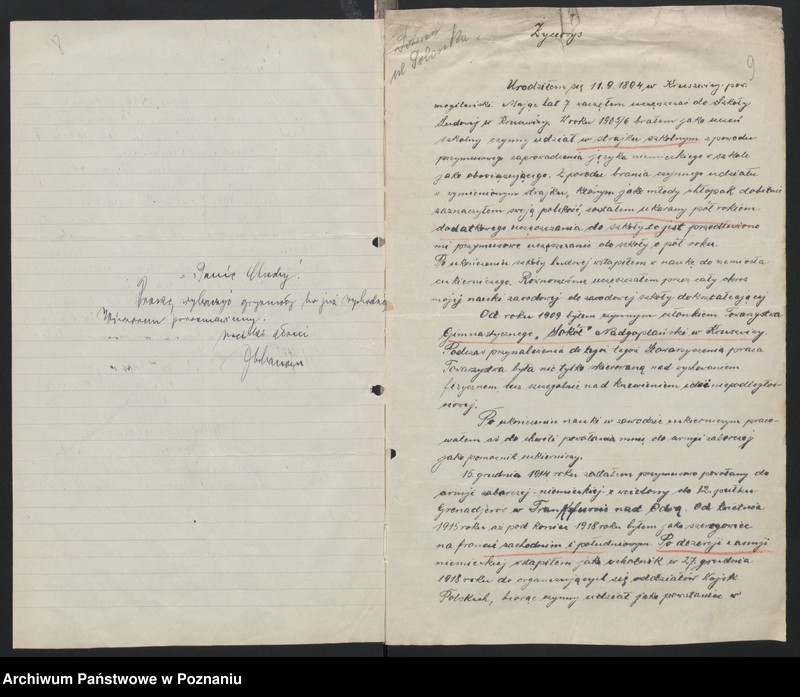 8
Panie
Proszę
9
Życiorys
Urodziłem się 11.9.1894 w Kruszwicy, pow.
mogileński. Mając lat 7 zacząłem uczęszczać do Szkoły
Ludowej w Kruszwicy. W roku 1905/6 brałem jako uczeń
szkolny czynny udział w strajku szkolnym z powodu
przymusowego zaprowadzenia języka niemieckiego w szkole
jako obowiązującego. Z powodu brania czynnego udziału
w wymienionym strajku, którym jako młody chłopak dobitnie
zaznaczyłem swoją polskość, zostałem ukarany pół rokiem
dodatkowego uczęszczania do szkoły to jest przedłużono
mi przymusowe uczęszczanie do szkoły o pół roku.
Po ukończeniu szkoły ludowej wstąpiłem w naukę do rzemiosła
cukierniczego. Równocześnie uczęszczałem przez cały okres
mojej nauki zawodowej do zawodowej szkoły dokształcającej
Od roku 1909 byłem czynnym członkiem Towarzystwa
Gimnastycznego "Sokół" Nadgoplański w Kruszwicy.
Podczas przynależenia do tegoż Towarzystwa praca
Towarzystwa była nie tylko skierowaną nad wychowaniem
fizycznem lecz szczególnie nad krzewieniem idei niepodległoś-
ciowej.
Po ukończeniu nauki w zawodzie cukierniczym praco-
wałem aż do chwili powołania mnie do armji zaborczej
jako pomocnik cukierniczy.
15. grudnia 1914 roku zostałem przymusowo powołany do
armji zaborczej - niemieckiej - i wcielony do 12. pułku
Grenadjerów w Frankfurcie nad Odrą. Od kwietnia
1915 roku aż pod koniec 1918 roku byłem jako szeregowiec
na froncie zachodnim i południowym. Po dezercji z armji
niemieckiej wstąpiłem jako ochotnik w 27. grudnia
1918 roku do organizujących się oddziałów Wojsk
Polskich, biorąc czynny udział jako powstaniec w
Archiwum Państwowe w Poznaniu